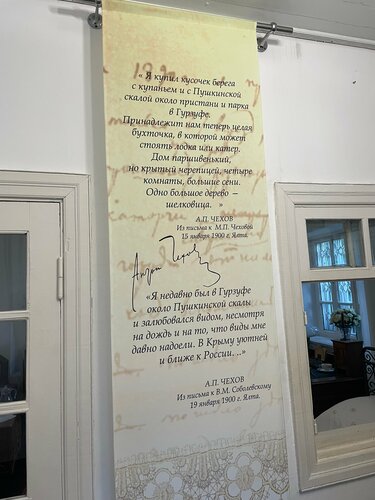 « Я купил кусочек берега
с купаньем и с Пушкинской
скалой около пристани и парка
в Гурзуфе.
Принадлежит нам теперь целая
бухточка, в которой может
стоять лодка или катер.
Дом паршивенький,
но крытый черепицей, четыре
комнаты, большие сени.
Одно большое дерево –
шелковица. »
А.П. ЧЕХОВ
Из письма к М.П. Чеховой
15 января 1900 г. Ялта.
Антон Чехов
«Я недавно был в Гурзуфе
около Пушкинской скалы
и залюбовался видом, несмотря
на дождь и на то, что виды мне
давно надоели. В Крыму уютней
и ближе к России. ..»
А.П. ЧЕХОВ
Из письма к В.М. Соболевскому
19 января 1900 г. Ялта.